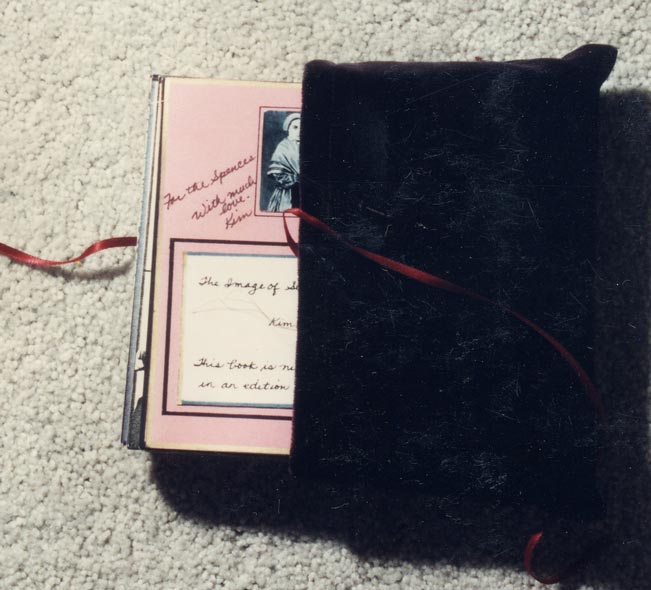 For the Spences
With much
love.
Kim
The Image of
Kim
This book is
in an edition